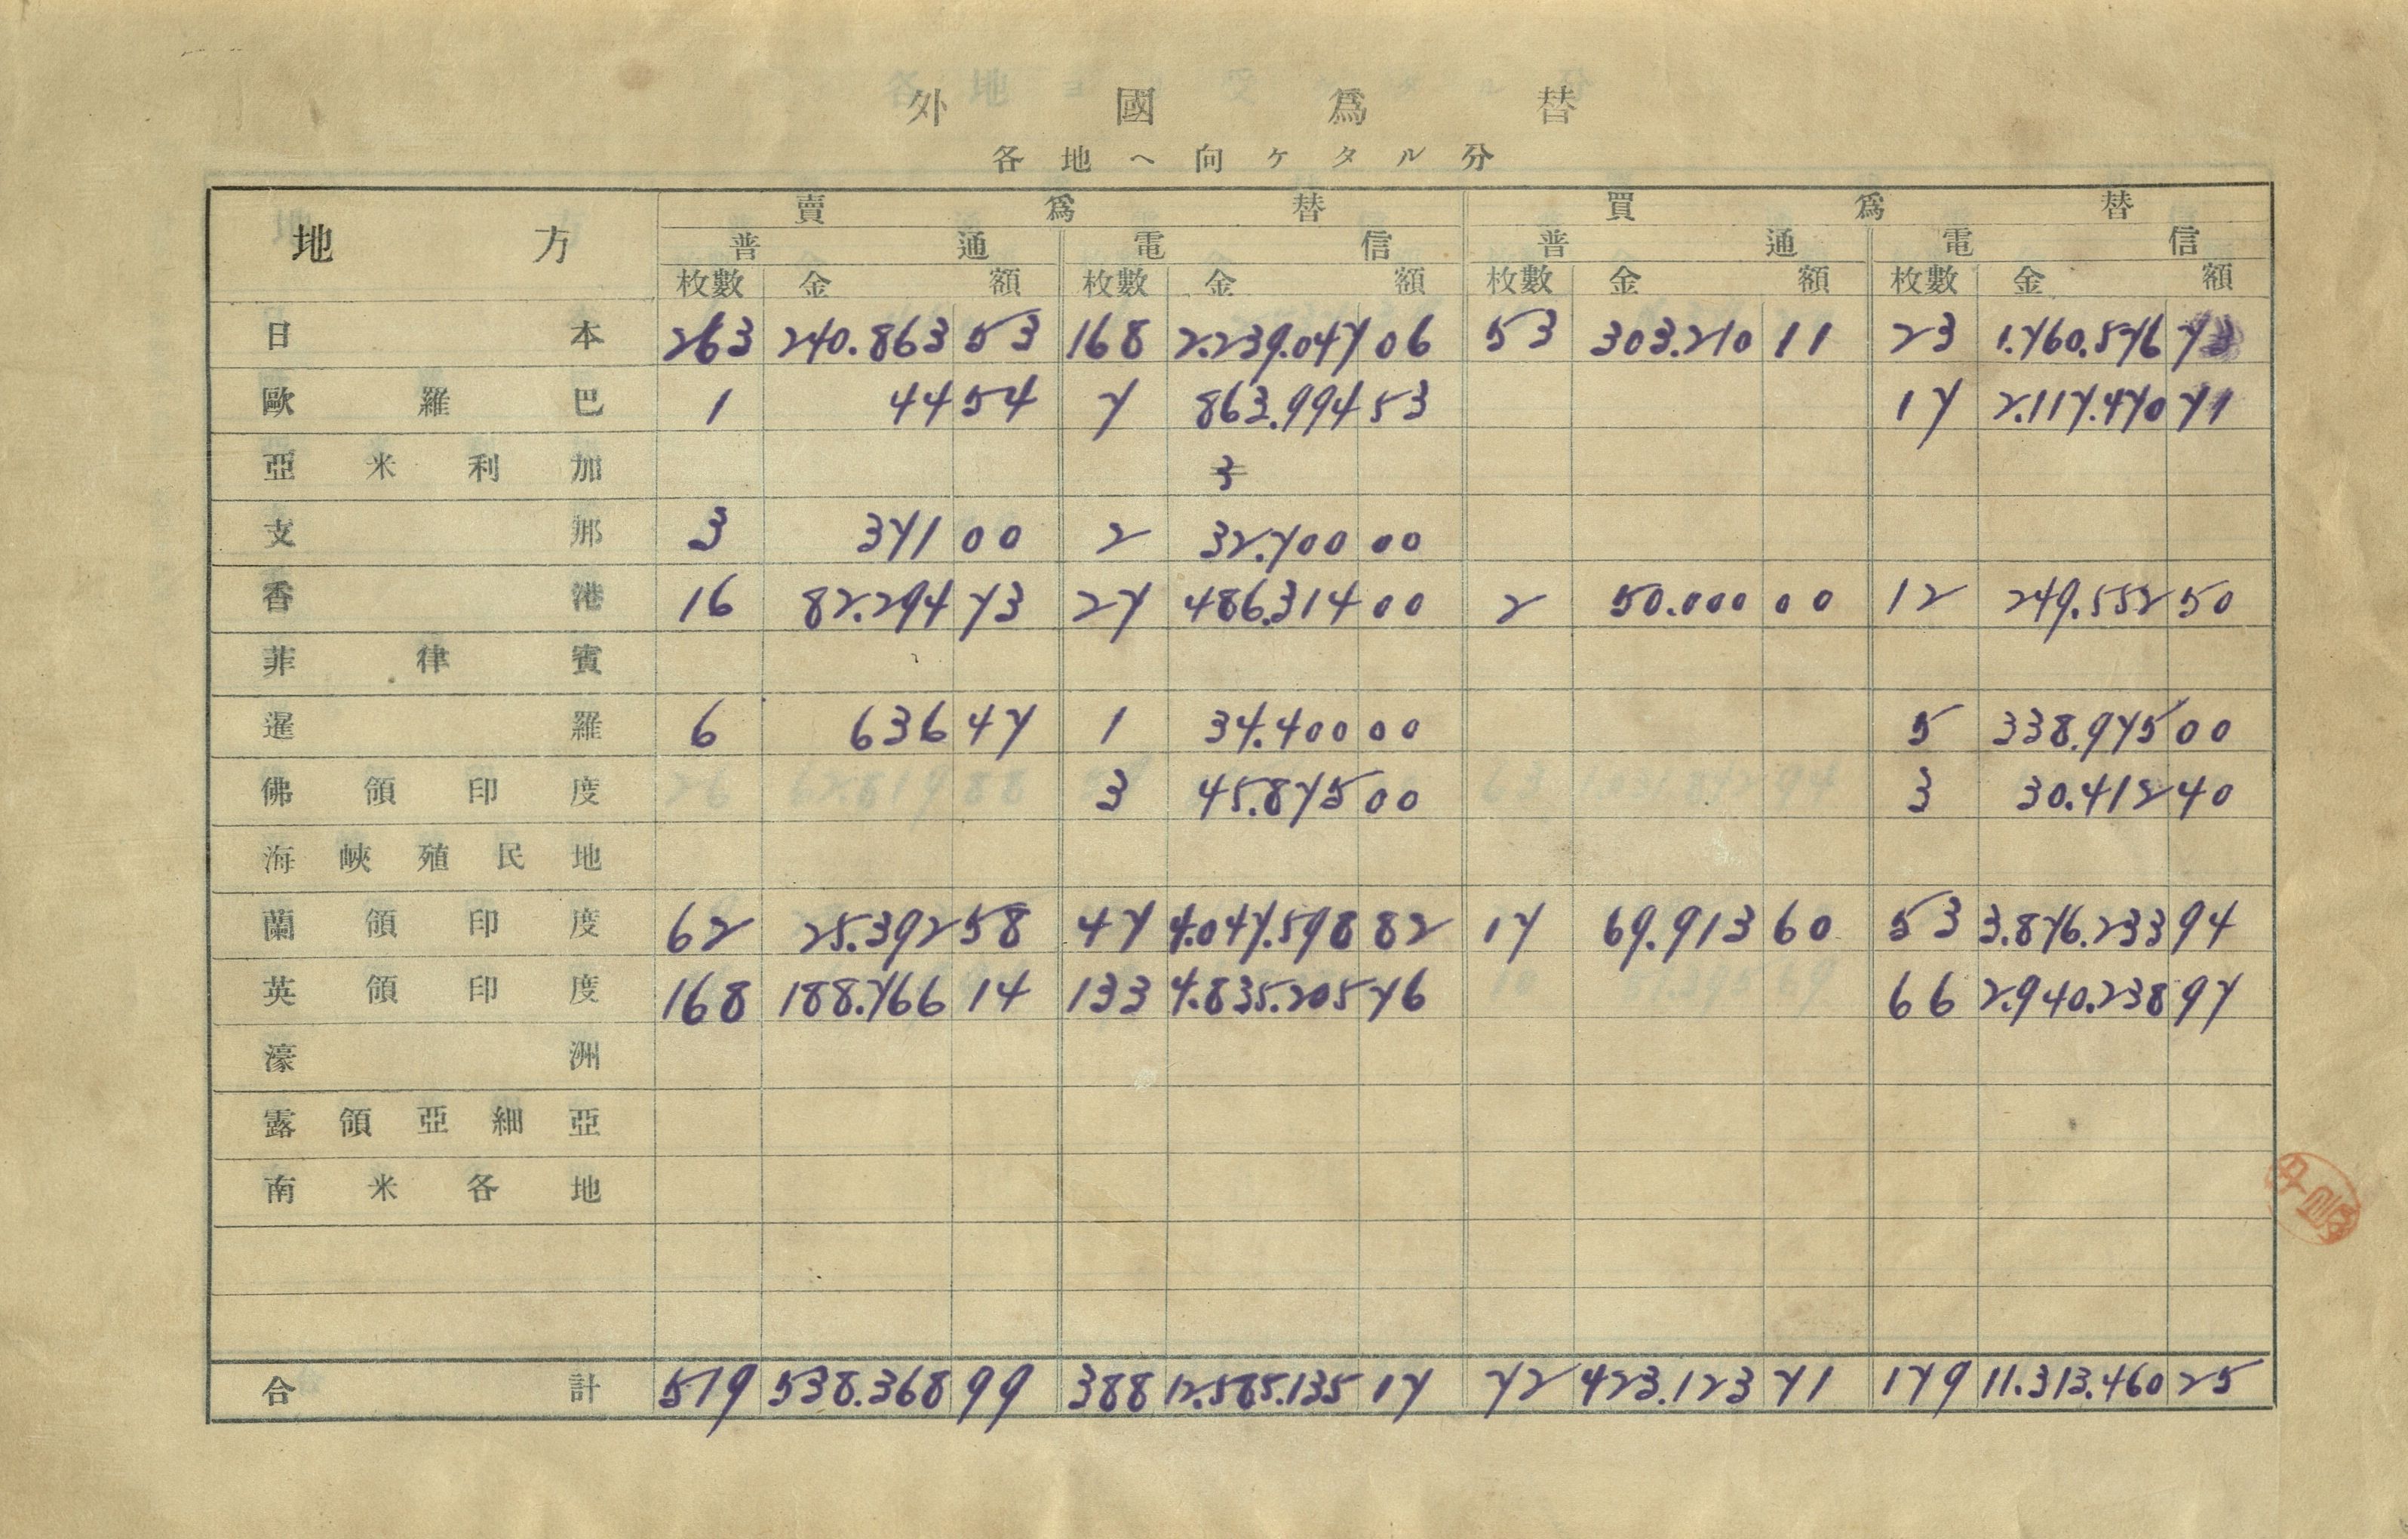 外國爲替
各地ヘ向ケタル分
地方 賣爲替 買爲替
普通 電信 普通 電信
枚數 金額 枚數 金額 枚數 金額 枚數 金額
日本 263 240.863 53 168 2.239.047 06 53 303.210 11 23 1.760.576 73
歐羅巴 1 44 54 7 863.994 53 17 2.117.470 71
亞米利加 3
支那 3 371 00 2 32.700 00
香港 16 82.294 73 27 486.314 00 2 50.000 00 12 249.552 50
菲律賓
暹羅 6 636 47 1 34.400 00 5 338.975 00
佛領印度 3 45.875 00 3 30.412 40
海峽殖民地
蘭領印度 62 25.392 58 47 4.047.598 82 17 69.913 60 53 3.876.233 94
英領印度 168 188.766 14 133 4.835.205 76 66 2.940.238 97
濠洲
露領亞細亞
南米各地
合計 519 538.368 99 388 12.585.135 17 72 423.123 71 179 11.313.460 25